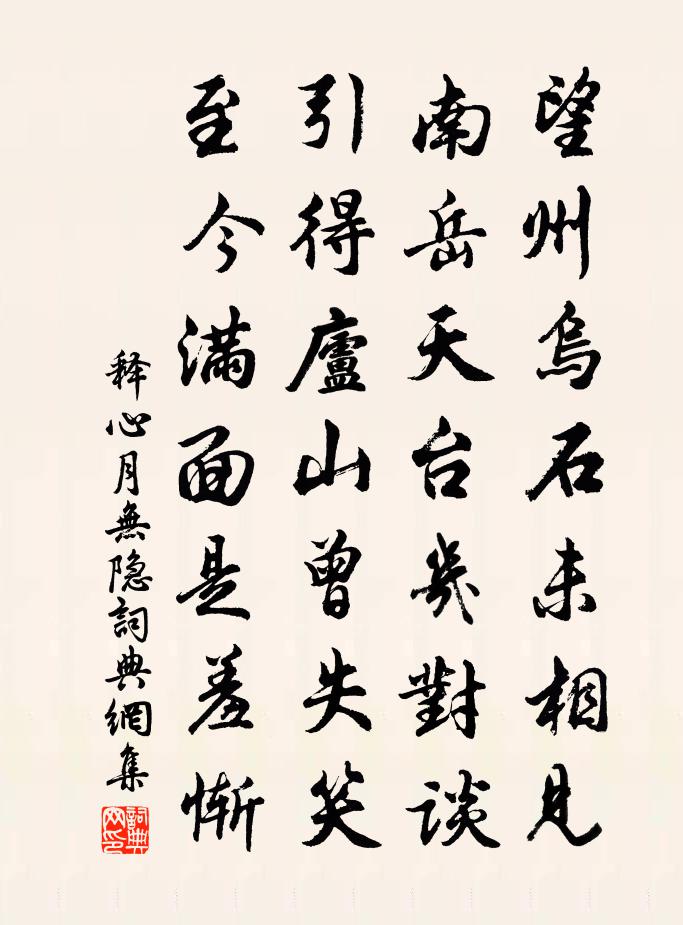 望州烏石未相見
南岳天台幾對談
引得廬山曾失笑
至今滿面是羞慚
释心月無隐詞典網集
詞典網印